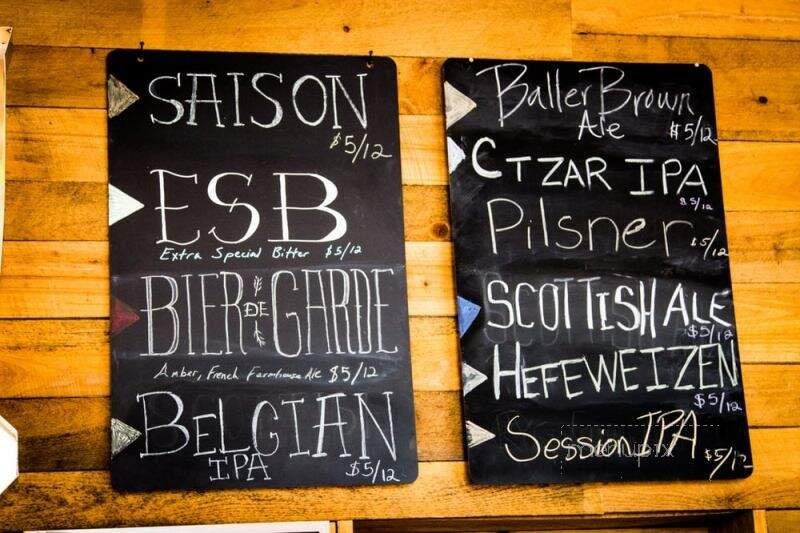 SAISON
$5/12
ESB
Extra Special Bitter $5/12
BIER DE GARDE
Amber, French Farmhouse Ale $5/12
BELGIAN
IPA $5/12
Baller Brown
Ale $5/12
CTZAR IPA
$5/12
Pilsner $5/12
SCOTTISH ALE
$5/12
HEFEWEIZEN
$5/12
Session IPA $5/12
menupix